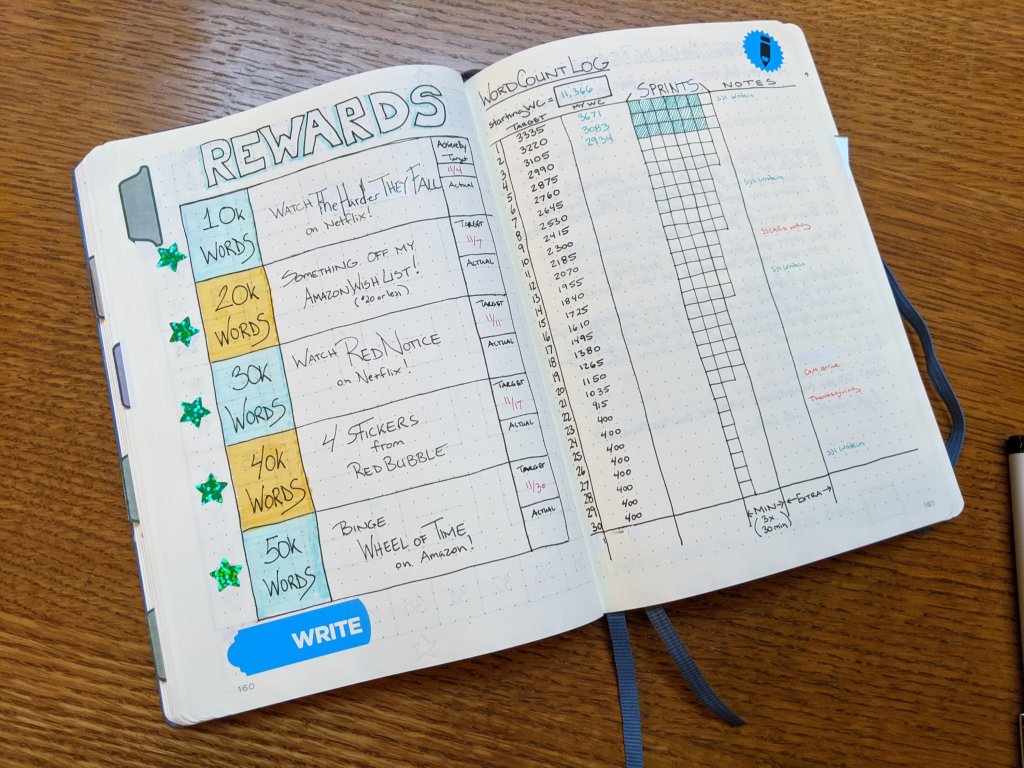 REWARDS
10k WORDS
WATCH The Harder THEY FALL
on Netflix!
Achieved by
Target
11/4
Actual
20k WORDS
SOMETHING OFF MY
AMAZON WISH LIST!
($20 or less)
TARGET
11/7
ACTUAL
30k WORDS
WATCH RED NOTICE
on Netflix!
TARGET
11/11
ACTUAL
40k WORDS
4 STICKERS
from
REDBUBBLE
TARGET
11/17
ACTUAL
50k WORDS
BINGE
WHEEL OF TIME
on Amazon!
TARGET
11/30
ACTUAL
WRITE
160
WORD COUNT LOG
starting WC = 11,366
TARGET MY WC SPRINTS NOTES
1 3335 3671
2 3220 3083
3 3105 2934
4 2990
5 2875
6 2760
7 2645
8 2530
9 2415
10 2300
11 2185
12 2070
13 1955
14 1840
15 1725
16 1610
17 1495
18 1380
19 1265
20 1150
21 1035
22 915
23 400
24 400
25 400
26 400
27 400
28 400
29 400
30 400
Thanksgiving
MIN EXTRA
3x
(30min)
161